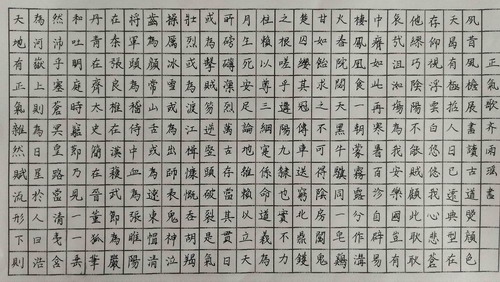 天地有正氣雜然賦流形下則
為河嶽上則為日星於人曰浩
然沛乎塞蒼冥皇路當清夷含
和吐明庭時窮節乃見一一垂
丹青在齊太史簡在晉董狐筆
在秦張良椎在漢蘇武節為嚴
將軍頭為嵇侍中血為張睢陽
齒為顏常山舌或為遼東帽清
操厲冰雪或為出師表鬼神泣
壯烈或為渡江楫慷慨吞胡羯
或為擊賊笏逆豎頭破裂是氣
所磅礡凜烈萬古存當其貫日
月生死安足論地維賴以立天
柱賴以尊三綱實繫命道義為
之根嗟予遘陽九隸也實不力
楚囚纓其冠傳車送窮北鼎鑊
甘如飴求之不可得陰房闃鬼
火春院閟天黑牛驥同一皂鷄
棲鳳凰食一朝蒙霧露分作溝
中瘠如此再寒暑百沴自辟易
哀哉沮洳場為我安樂國豈有
他繆巧陰陽不能賊顧此耿耿
存仰視浮雲白悠悠我心悲蒼
天曷有極哲人日已遠典型在
夙昔風簷展書讀古道照顏色
正氣歌 齊雨書